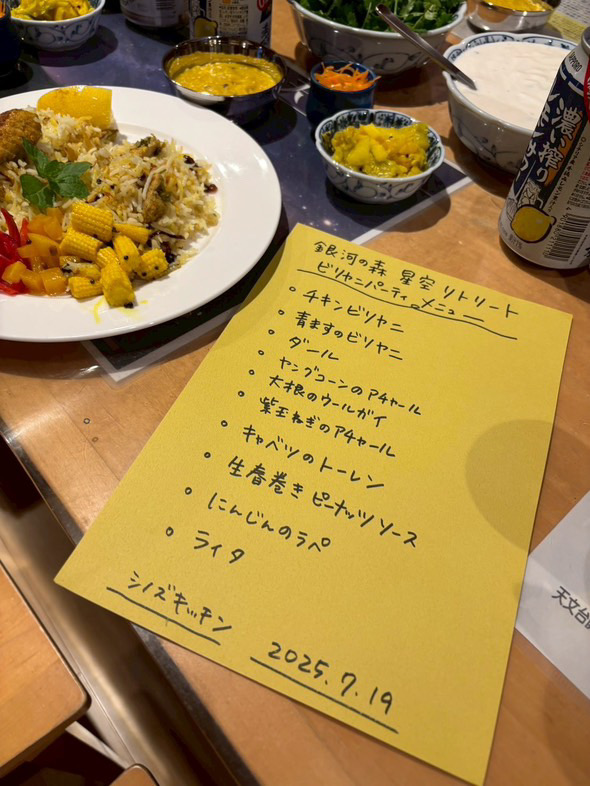 銀河の森 星空 リトリート
ビリヤニパーティ メニュー
• チキンビリヤニ
• 青ますのビリヤニ
• ダール
• ヤングコーンのアチャール
• 大根のウールガイ
• 紫玉ねぎのアチャール
• キャベツのトーレン
• 生春巻き ピーナッツソース
• にんじんのラペ
• ライタ
シノズキッチン
2025.7.19
濃い搾り
レモンサワー
天文台